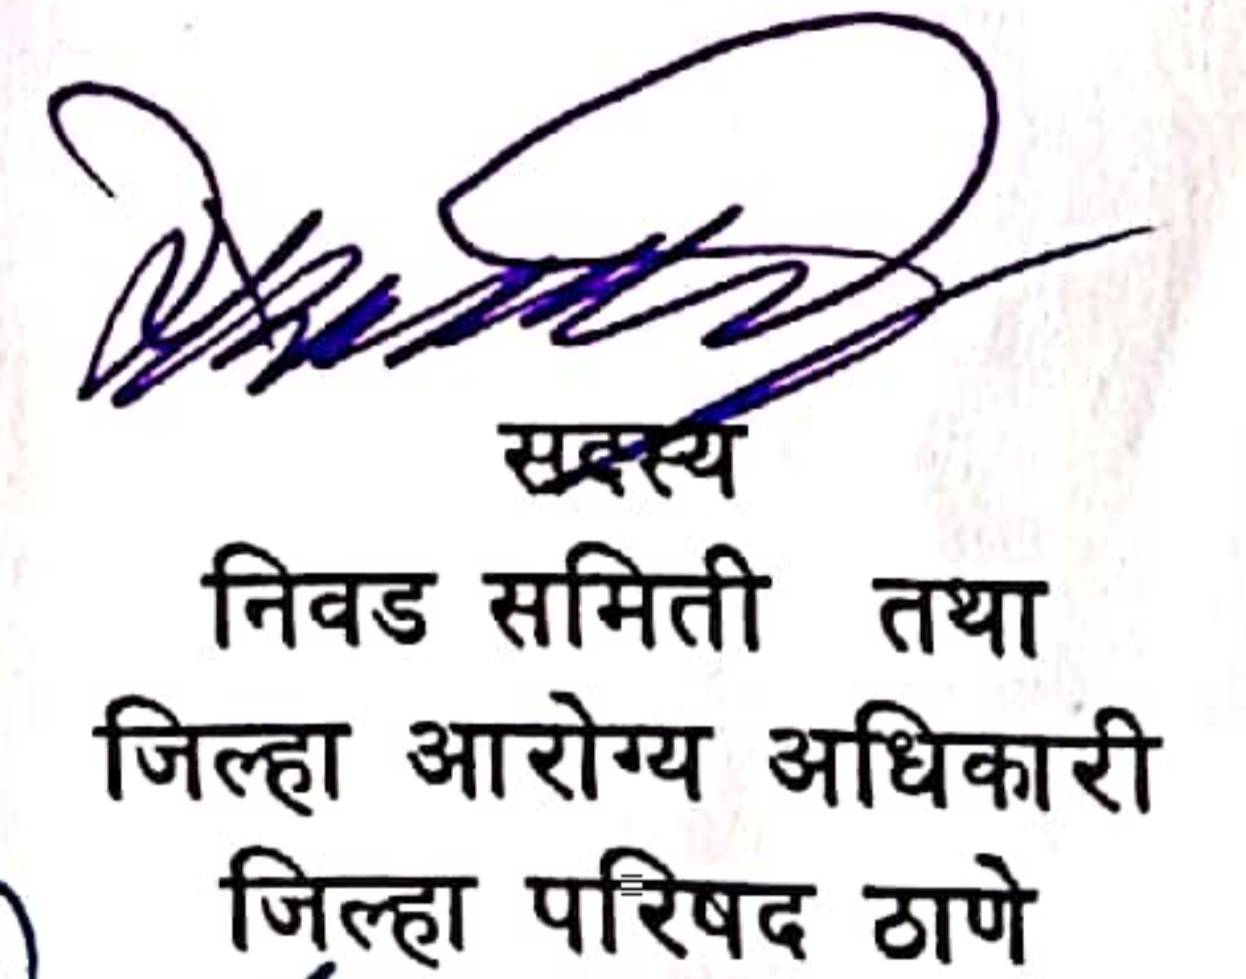 सदस्य
निवड समिती तथा
जिल्हा आरोग्य अधिकारी
जिल्हा परिषद ठाणे